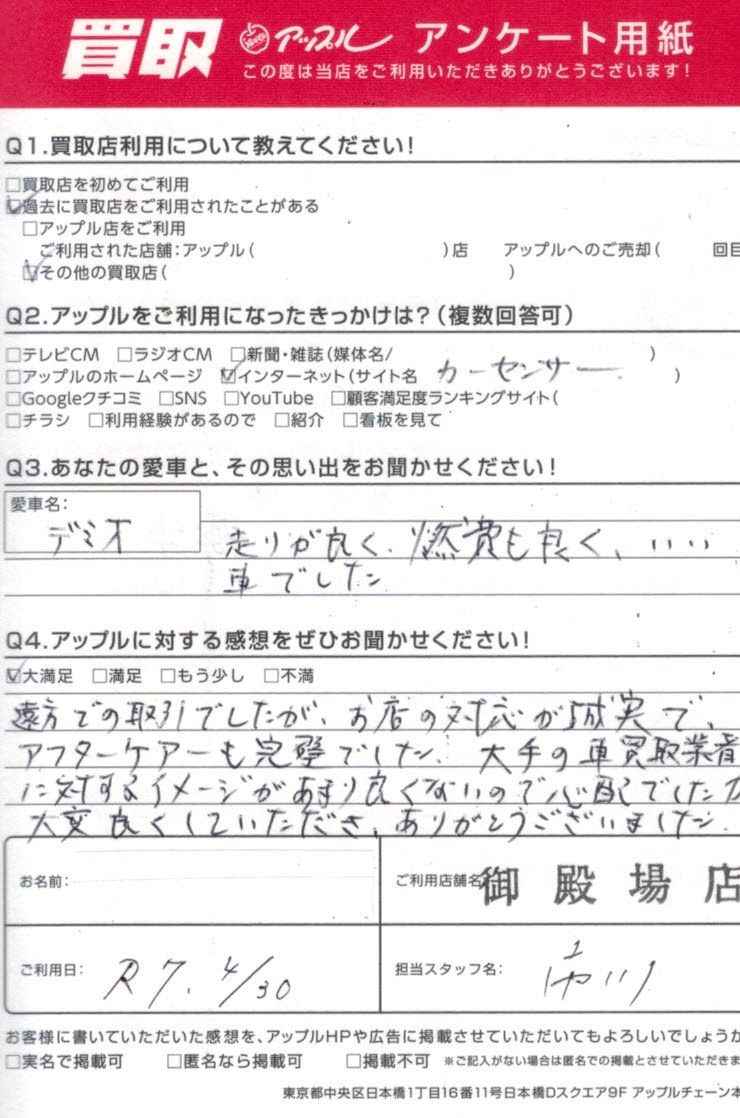 買取 アップル アンケート用紙
この度は当店をご利用いただきありがとうございます!
Q1.買取店利用について教えてください!
□買取店を初めてご利用
☑過去に買取店をご利用されたことがある
□アップル店をご利用
ご利用された店舗:アップル( )店 アップルへのご売却( 回目
☑その他の買取店( )
Q2.アップルをご利用になったきっかけは?(複数回答可)
□テレビCM □ラジオCM □新聞・雑誌(媒体名/ )
□アップルのホームページ ☑インターネット(サイト名 カーセンサー )
□Googleクチコミ □SNS □YouTube □顧客満足度ランキングサイト(
□チラシ □利用経験があるので □紹介 □看板を見て
Q3.あなたの愛車と、その思い出をお聞かせください!
愛車名:
デミオ 走りが良く、燃費も良く、いい
車でした
Q4.アップルに対する感想をぜひお聞かせください!
☑大満足 □満足 □もう少し □不満
遠方での取引でしたが、お店の対応が誠実で、
アフターケアーも完璧でした。大手の車買取業者
に対するイメージがあまり良くないので心配でしたが
大変良くしていただき、ありがとうございました。
お名前: ご利用店舗名: 御殿場店
ご利用日: R7. 4/30 担当スタッフ名:
お客様に書いていただいた感想を、アップルHPや広告に掲載させていただいてもよろしいでしょうか
□実名で掲載可 □匿名なら掲載可 □掲載不可 ※ご記入がない場合は匿名での掲載とさせていただきま
東京都中央区日本橋1丁目16番11号日本橋Dスクエア9F アップルチェーン本